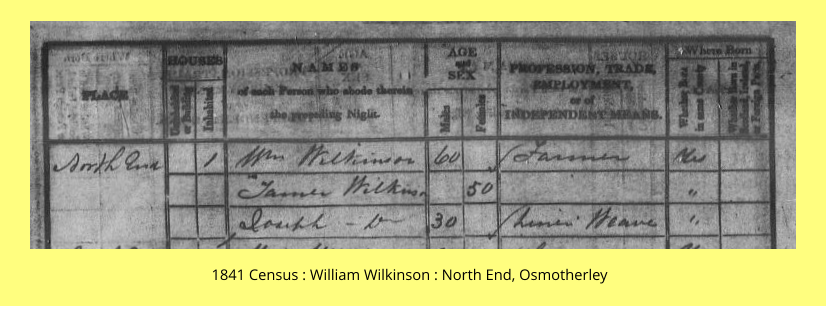 HOUSES
NAMES
AGE
and
SEX
Where Born
PLACE
Uninhabited
or Building
Inhabited
of each Person who abode therein
the preceding Night.
Males
Females
PROFESSION, TRADE,
EMPLOYMENT,
or of
INDEPENDENT MEANS.
Whether Born
in same County
Whether Born in
Scotland, Ireland,
or Foreign Parts.
North End 1 Wm Wilkinson 60 Farmer Yes
" Tamer Wilkinson 50 "
Joseph - Do 30 Linen Weaver "
1841 Census : William Wilkinson : North End, Osmotherley